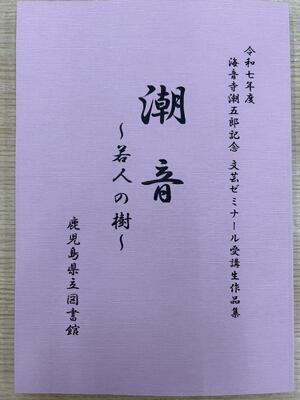 令和七年度
海音寺潮五郎記念 文芸ゼミナール受講生作品集
潮音
～若人の樹～
鹿児島県立図書館